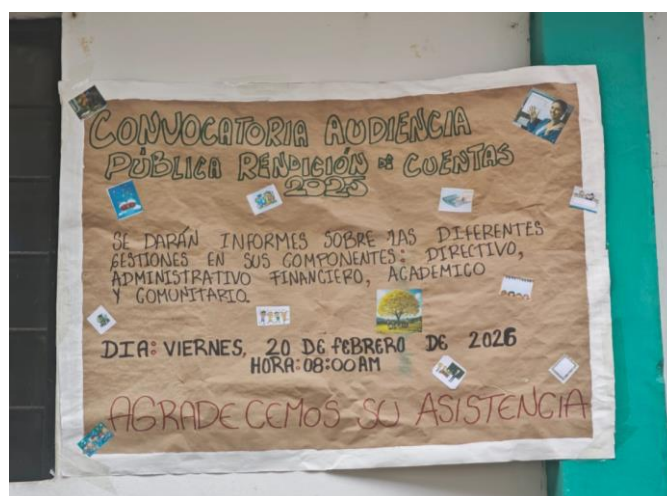 CONVOCATORIA AUDIENCIA
PÚBLICA RENDICIÓN DE CUENTAS
2025
SE DARÁN INFORMES SOBRE LAS DIFERENTES
GESTIONES EN SUS COMPONENTES: DIRECTIVO,
ADMINISTRATIVO FINANCIERO, ACADEMICO
Y COMUNITARIO.
DIA: VIERNES, 20 DE FEBRERO DE 2026
HORA: 08:00 AM
AGRADECEMOS SU ASISTENCIA